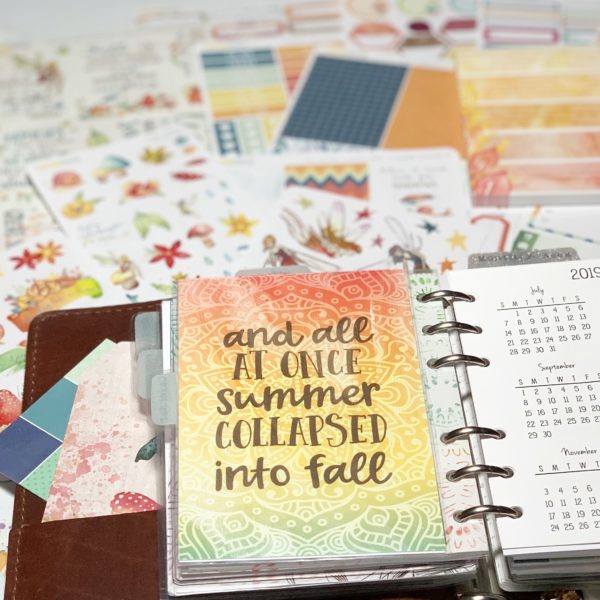 and all
AT ONCE
summer
COLLAPSED
into fall
2019
July
S M T W T F S
1 2 3 4 5 6
7 8 9 10 11 12 13
14 15 16 17 18 19 20
21 22 23 24 25 26 27
28 29 30 31
September
S M T W T F S
1 2 3 4 5 6 7
8 9 10 11 12 13 14
15 16 17 18 19 20 21
22 23 24 25 26 27 28
29 30
November
S M T W T
3 4 5 6 7
10 11 12 13 14
17 18 19 20 21
24 25 26 27 28